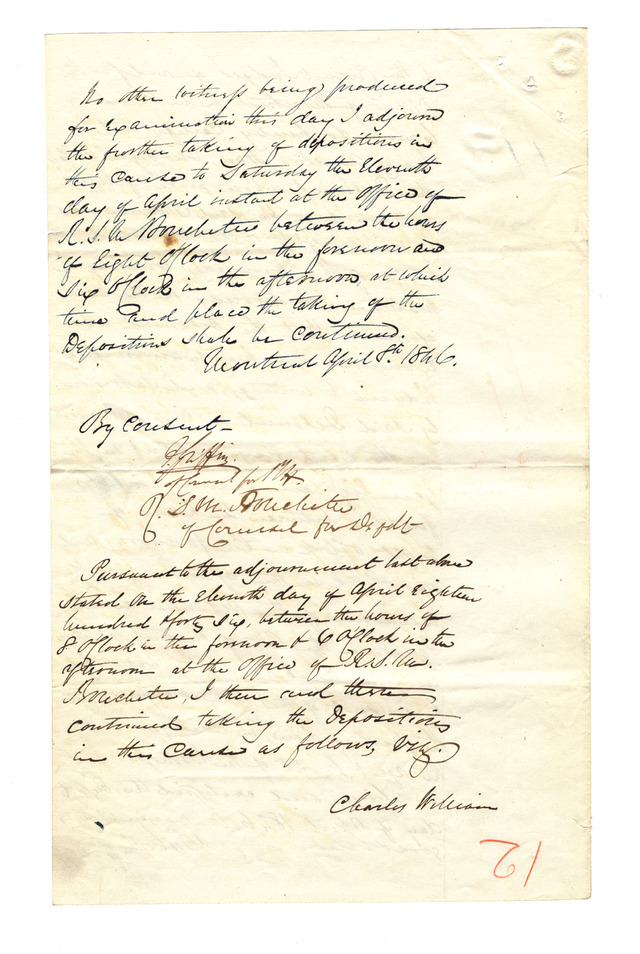 No other witness being produced
for Examination this day I adjourn
the further taking of depositions in
this cause to Saturday the Eleventh
day of April instant at the Office of
R. S. M. Bouchette between the hours
of Eight O'Clock in the forenoon and
Six O'Clock in the afternoon, at which
time and place the taking of the
Depositions shall be continued.
Montreal April 8th. 1846.
By Consent –
Griffin
of Counsel for Plff.
R. S. M. Bouchette
of Counsel for Defdt
Pursuant to the adjournment last above
stated on the Eleventh day of April Eighteen
hundred & forty Six, between the hours of
8 O'Clock in the forenoon & 6 O'Clock in the
afternoon at the Office of R. S. M.
Bouchette, I then and there
continued taking the Depositions
in this Cause as follows, Viz.
Charles William
12